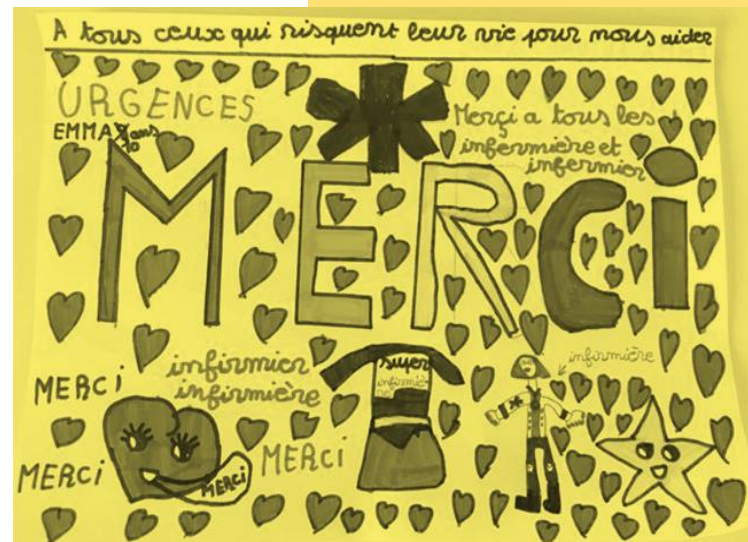 A tous ceux qui risquent leur vie pour nous aider
URGENCES
EMMA
ans
10
Merçi a tous les
infermière et
infermier
MERCi
infirmier
infirmière
super
infirmiè
re
infirmière
MERCi
MERCi
MERCi
MERCi